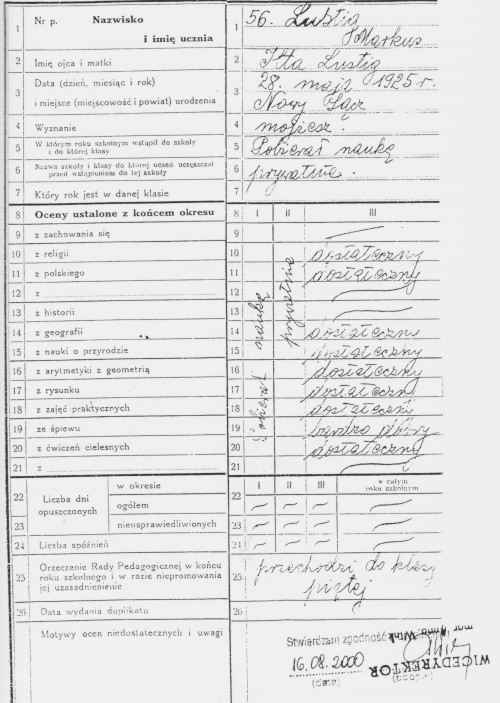 1 Nr p. Nazwisko
i imię ucznia
1 56. Lustig
Markus
2 Imię ojca i matki
2 Itta Lustig
3 Data (dzień, miesiąc i rok)
i miejsce (miejscowość i powiat) urodzenia
3 28. maja 1925 r.
Nowy Sącz
4 Wyznanie
4 mojżesz.
5 W którym roku szkolnym wstąpił do szkoły
i do której klasy
5 Pobierał naukę
6 Nazwa szkoły i klasy do której uczeń uczęszczał
przed wstąpieniem do tej szkoły
6 prywatnie.
7 Który rok jest w danej klasie
7
8 Oceny ustalone z końcem okresu 8 I II III
9 z zachowania się 9 —
10 z religii 10 dostateczny
11 z polskiego 11 dostateczny
12 z 12 —
13 z historii 13 —
14 z geografii 14 dostateczny
15 z nauki o przyrodzie 15 dostateczny
16 z arytmetyki z geometrią 16 dostateczny
17 z rysunku 17 dostateczny
18 z zajęć praktycznych 18 dostateczny
19 ze śpiewu 19 bardzo dobry
20 z ćwiczeń cielesnych 20 dostateczny
21 z 21 —
Pobierał naukę
prywatnie
22 Liczba dni
opuszczonych
w okresie 22 I II III w całym
roku szkolnym
ogółem — — — —
23 nieusprawiedliwionych 23 — — — —
24 Liczba spóźnień 24 — — — —
25 Orzeczenie Rady Pedagogicznej w końcu
roku szkolnego i w razie niepromowania
jej uzasadnienie
25 przechodzi do klasy
piątej
26 Data wydania duplikatu 26
Motywy ocen niedostatecznych i uwagi
Stwierdzam zgodność
16.08.2000
(data)
WICEDYREKTOR